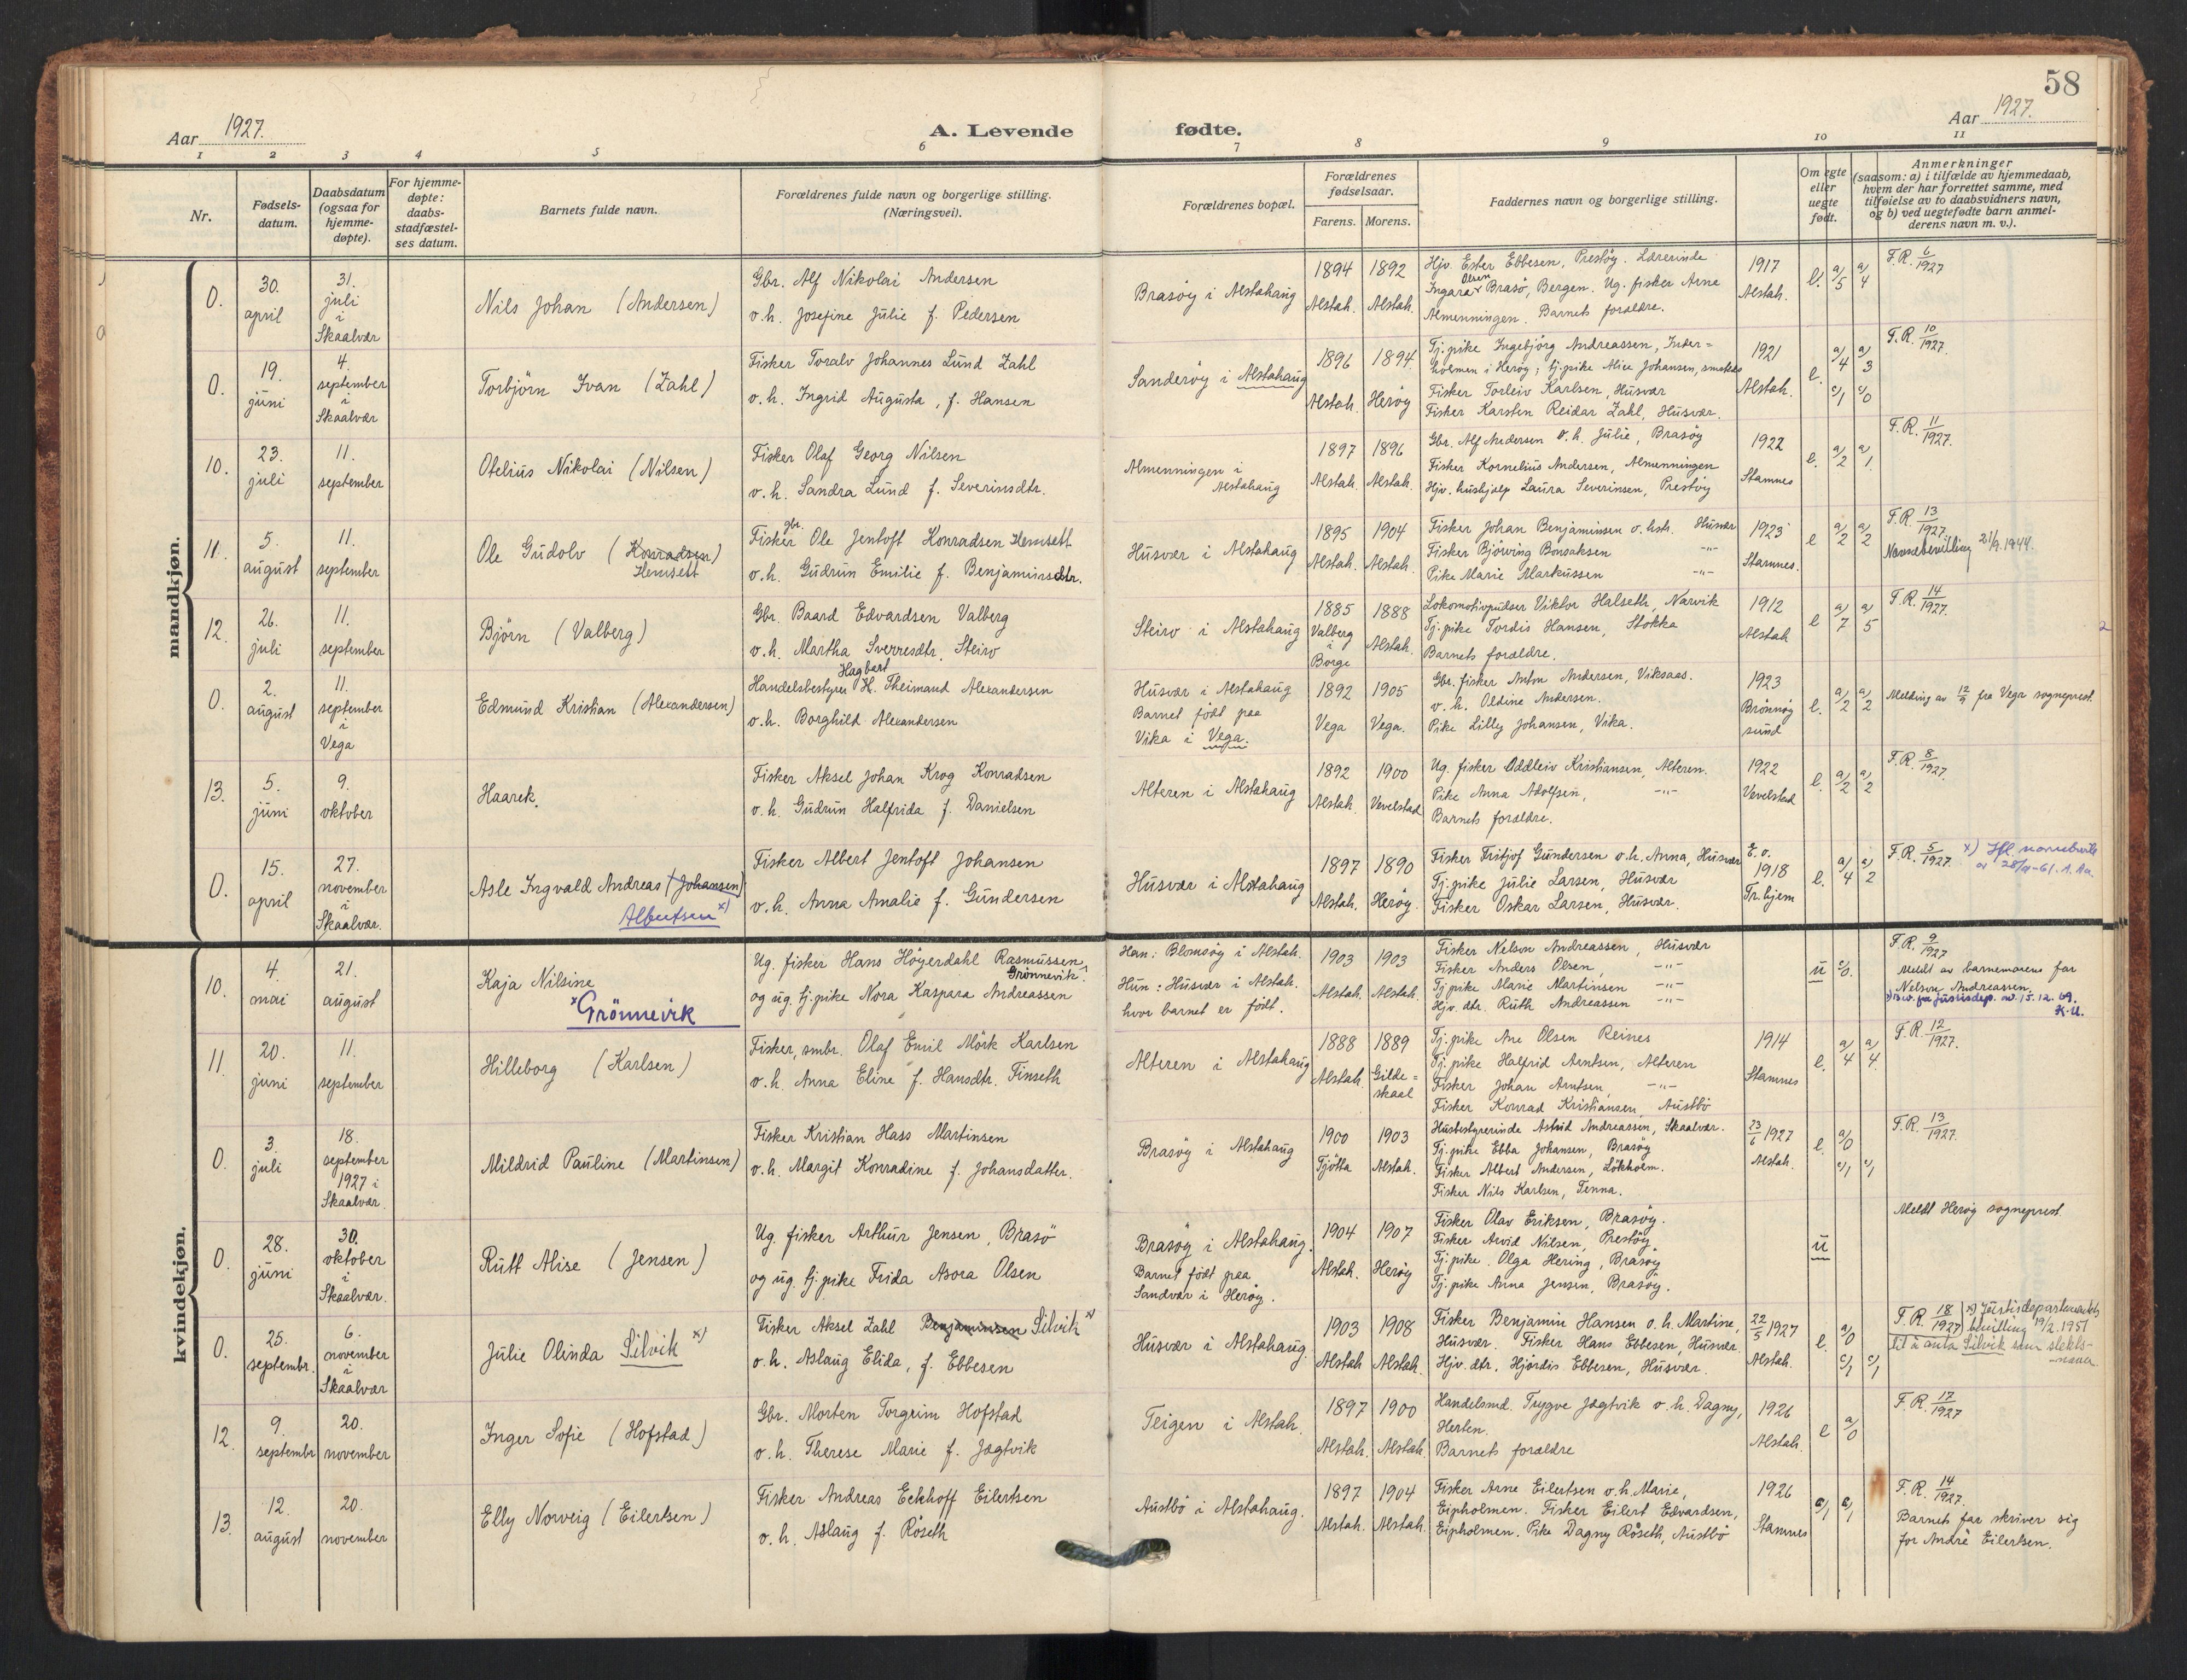 58
Aar 1927.
A. Levende
fødte.
Aar 1927.
1 2 3 4 5 6 7 8 9 10 11
Nr.
Fødsels-
datum.
Daabsdatum
(ogsaa for
hjemme-
døpte).
For hjemme-
døpte:
daabs-
stadfæstel-
ses datum.
Barnets fulde navn.
Forældrenes fulde navn og borgerlige stilling.
(Næringsvei).
Forældrenes bopæl.
Forældrenes
fødselsaar.
Farens. Morens.
Faddernes navn og borgerlige stilling.
Om egte
eller
uegte
født.
Anmerkninger
(saasom: a) i tilfælde av hjemmedaab,
hvem der har forrettet samme, med
tilføielse av to daabsvidners navn,
og b) ved uegtefødte barn anmel-
derens navn m. v.).
mandkjøn.
0.
30.
april
31.
juli
i
Skaalvær
Nils Johan (Andersen)
Gbr. Alf Nikolai Andersen
o.h. Josefine Julie f. Pedersen
Brasöy i Alstahaug
1894 1892
Alstah. Alstah.
Hjv. Ester Ebbesen, Prestöy. Lærerinde
Olsen
Ingara Brasö, Bergen. Ug. fisker Arne
Almenningen. Barnets forældre.
1917
Alstah.
e. a/5 a/4
F.R. 6/1927
0.
19.
juni
4.
september
i
Skaalvær
Torbjörn Ivan (Zahl)
Fisker Toralv Johannes Lund Zahl
o.h. Ingrid Augusta, f. Hansen
Sanderöy i Alstahaug
1896 1894
Alstah. Heröy
Tj.pike Ingebjörg Andreassen, Inder=
holmen i Heröy; tj.pike Alice Johansen,
Fisker Torleiv Karlsen, Husvær
Fisker Karsten Reidar Zahl, Husvær.
1921
Alstah.
e. a/4 a/3
c/1 c/0
F.R. 10/1927.
10.
23.
juli
11.
september
Otelius Nikolai (Nilsen)
Fisker Olaf Georg Nilsen
o.h. Sandra Lund f. Severinsdtr.
Almenningen i
Alstahaug
1897 1896
Alstah. Alstah.
Gbr. Alf Andersen o.h. Julie, Brasöy
Fisker Kornelius Andersen, Almenningen
Hjv. hushjælp Laura Severinsen, Prestöy
1922
Stamnes
e. a/2 a/1
F.R. 11/1927.
11.
5.
august
11.
september
Ole Gudolv (Konradsen)
Hemsett
gbr.
Fisker Ole Jentoft Konradsen Hemsett
o.h. Gudrun Emilie f. Benjaminsdtr.
Husvær i Alstahaug
1895 1904
Alstah. Alstah.
Fisker Johan Benjaminsen o. hstr. Husvær
Fisker Bjöving Bonsaksen -"-
Pike Marie Markussen -"-
1923
Stamnes.
e a/2 a/2
F.R. 13/1927.
Navnebevilling 21/9.1944.
12.
26.
juli
11.
september
Björn (Valberg)
Gbr. Baard Edvardsen Valberg
o.h. Martha Sverresdtr. Steiro
Steiro i Alstahaug
1885 1888
Valberg
i
Borge
Alstah.
Lokomotivpudser Viktor Halseth, Narvik
Tj.pike Tordis Hansen, Stokka
Barnets forældre.
1912
Alstah
e a/7 a/5
F.R. 14/1927.
0.
2.
august
11.
september
i
Vega
Edmund Kristian (Alexandersen)
Hagbart
Handelsbestyrer H. Theimand Alexandersen
o.h. Borghild Alexandersen
Husvær i Alstahaug
Barnet födt paa
Vika i Vega.
1892 1905
Vega Vega.
Gbr. fisker Anton Andersen, Viksaas.
o.h. Oldine Andersen.
Pike Lilly Johansen, Vika.
1923
Brönnöy
sund
e. a/2 a/2
Melding av 12/9 fra Vega sogneprest.
13.
5.
juni
9.
oktober
Haarek.
Fisker Aksel Johan Krog Konradsen
o.h. Gudrun Halfrida f. Danielsen
Alteren i Alstahaug
1892 1900
Alstah. Vevelstad
Ug. fisker Oddleiv Kristiansen, Alteren.
Pike Anna Adolfsen, -"-
Barnets forældre.
1922
Vevelstad
e. a/2 a/2
F.R. 8/1927.
0.
15.
april
27.
november
i
Skaalvær.
Asle Ingvald Andreas (Johansen)
Albertsen x)
Fisker Albert Jentoft Johansen
o.h. Anna Amalie f. Gundersen
Husvær i Alstahaug
1897 1890
Alstah. Heröy.
Fisker Fritjof Gundersen o.h. Anna, Husvær
Tj.pike Julie Larsen, Husvær
Fisker Oskar Larsen, Husvær.
E.o.
1918
Tr.hjem
e. a/4 a/2
F.R. 5/1927.
kvindekjøn.
10.
4.
mai
21.
august
Kaja Nilsine
x Grönnevik
Ug. fisker Hans Höyerdahl Rasmussen
Grönnevik.
og ug. tj.pike Nora Kaspara Andreassen
Han: Blomsöy i Alstah.
Hun: Husvær i Alstah.
hvor barnet er födt.
1903 1903
Alstah. Alstah.
Fisker Nelson Andreassen, Husvær
Fisker Anders Olsen, -"-
Tj.pike Marie Martinsen -"-
Hjv. dtr. Ruth Andreassen -"-
u c/0.
F.R. 9/1927
Meldt av barnemorens far
Nelson Andreassen.
15.12.69.
K.U.
11.
20.
juni
11.
september
Hilleborg (Karlsen)
Fisker, smbr. Olaf Emil Mörk Karlsen
o.h. Anna Eline f. Hansdtr. Finseth
Alteren i Alstahaug
1888 1889
Alstah. Gilde=
skaal
Tj.pike Ane Olsen Reines
Tj.pike Halfrid Arntsen, Alteren
Fisker Johan Arntsen -"-
Fisker Konrad Kristiansen, Austbö
1914
Stamnes
e. a/4 a/4.
F.R. 12/1927.
0.
3.
juli
18.
september
1927 i
Skaalvær.
Mildrid Pauline (Martinsen)
Fisker Kristian Hass Martinsen
o.h. Margit Konradine f. Johansdatter.
Brasöy i Alstahaug
1900 1903
Tjötta Alstah.
Husbestyrerinde Astrid Andreassen, Skaalvær.
Tj.pike Ebba Johansen, Brasöy
Fisker Albert Andersen, Lökholm.
Fisker Nils Karlsen, Tenna.
23/6 1927
Alstah.
e. a/0
c/1 c/1
F.R. 13/1927.
0.
28.
juni
30.
oktober
i
Skaalvær.
Rutt Alise (Jensen)
Ug. fisker Arthur Jensen, Brasö
og ug. tj.pike Frida Asora Olsen
Brasöy i Alstahaug.
Barnet födt paa
Sandvær i Heröy.
1904 1907
Alstah. Heröy
Fisker Olav Eriksen, Brasöy.
Fisker Arvid Nilsen, Prestöy
Tj.pike. Olga Hering, Brasöy
Tj.pike Anna Jensen, Brasöy.
u
Meldt Heröy sogneprest.
0.
25.
septembr.
6.
november
i
Skaalvær
Julie Olinda Silvik x)
Fisker Aksel Zahl Benjaminsen Silvik x)
o.h. Aslaug Elida, f. Ebbesen
Husvær i Alstahaug.
1903 1908
Alstah Alstah.
Fisker Benjamin Hansen o.h. Martine,
Husvær. Fisker Hans Ebbesen, Husvær.
Hjv. dtr. Hjördis Ebbesen, Husvær.
22/5 1927
Alstah.
e. a/0
c/1 c/1
F.R. 18/1927 x) Justisdepartementets
bevilling 19/2.1951
til å anta Silvik som slekts-
-navn
12.
9.
septembr
20.
november
Inger Sofie (Hofstad)
Gbr. Morten Torgrim Hofstad
o.h. Therese Marie f. Jægtvik
Teigen i Alstah.
1897 1900
Alstah. Alstah.
Handelsmd. Trygve Jægtvik o.h. Dagny,
Herten.
Barnets forældre
1926
Alstah.
e a/0
F.R. 17/1927
13.
12.
august
20.
november
Elly Norveig (Eilertsen)
Fisker Andreas Eckhoff Eilertsen
o.h. Aslaug f. Röseth
Austbö i Alstahaug.
1897 1904
Alstah. Alstah.
Fisker Arne Eilertsen o.h. Marie,
Eipholmen. Fisker Eilert Edvardsen,
Eipholmen. Pike Dagny Röseth, Austbö
1926
Stamnes
F.R. 14/1927.
Barnets far skriver sig
for André Eilertsen.